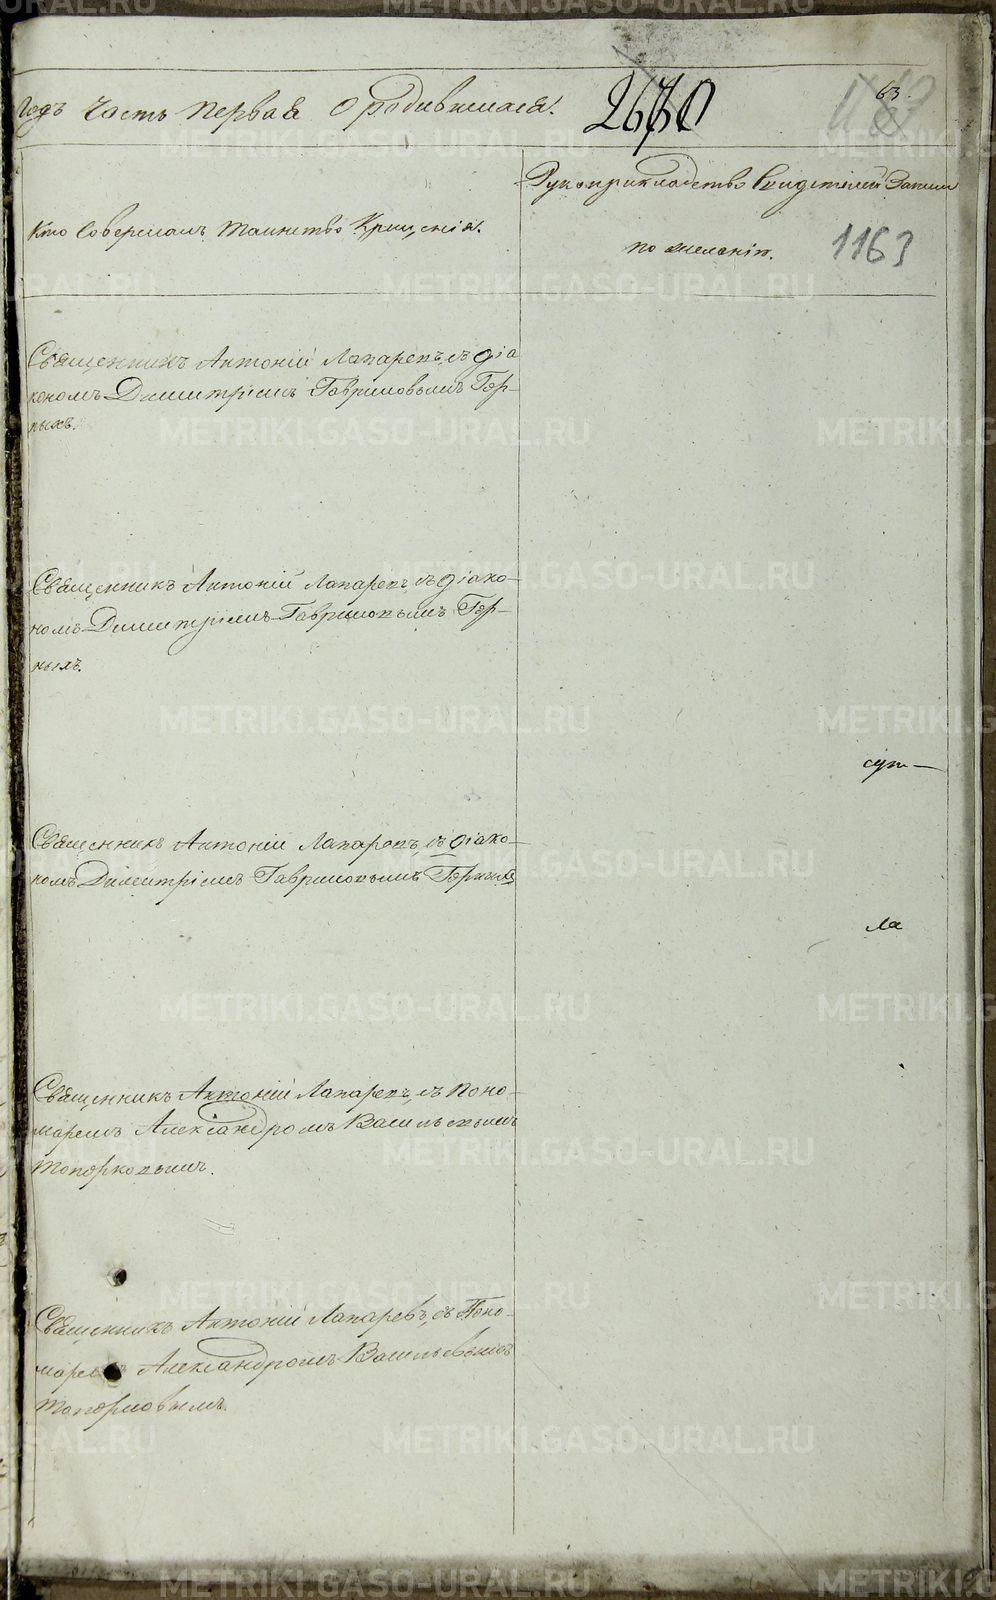 Годъ Часть Первая О родившихся.
2670
63.
Кто Совершалъ таинство Крещенія.
Рукоприкладство Свидетелей Записи
по желанію.
1163
Священникъ Антоній Лапаревъ, съ діа
кономъ Димитріемъ Гавриловымъ Гор-
ныхъ.
Священникъ Антоній Лапаревъ, съ діако-
номъ Димитріемъ Гавриловымъ Гор-
ныхъ.
Священникъ Антоній Лапаревъ, съ діако-
номъ Димитріемъ Гавриловымъ Горныхъ
ла
Священникъ Антоній Лапаревъ, съ Поно-
маремъ Александромъ Васильевымъ
Топорковымъ.
Священникъ Антоній Лапаревъ, съ Поно-
маремъ Александромъ Васильевымъ
METRIKI.GASO-URAL.RU